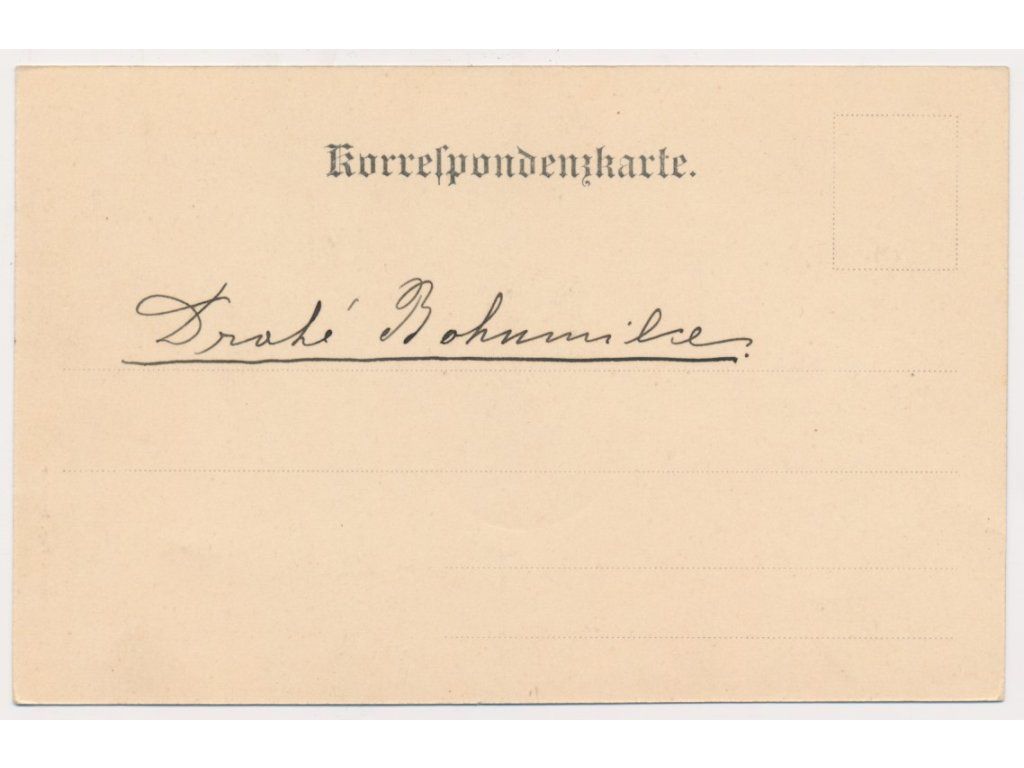 Korreſpondenzkarte.
Drahé Bohumilce.